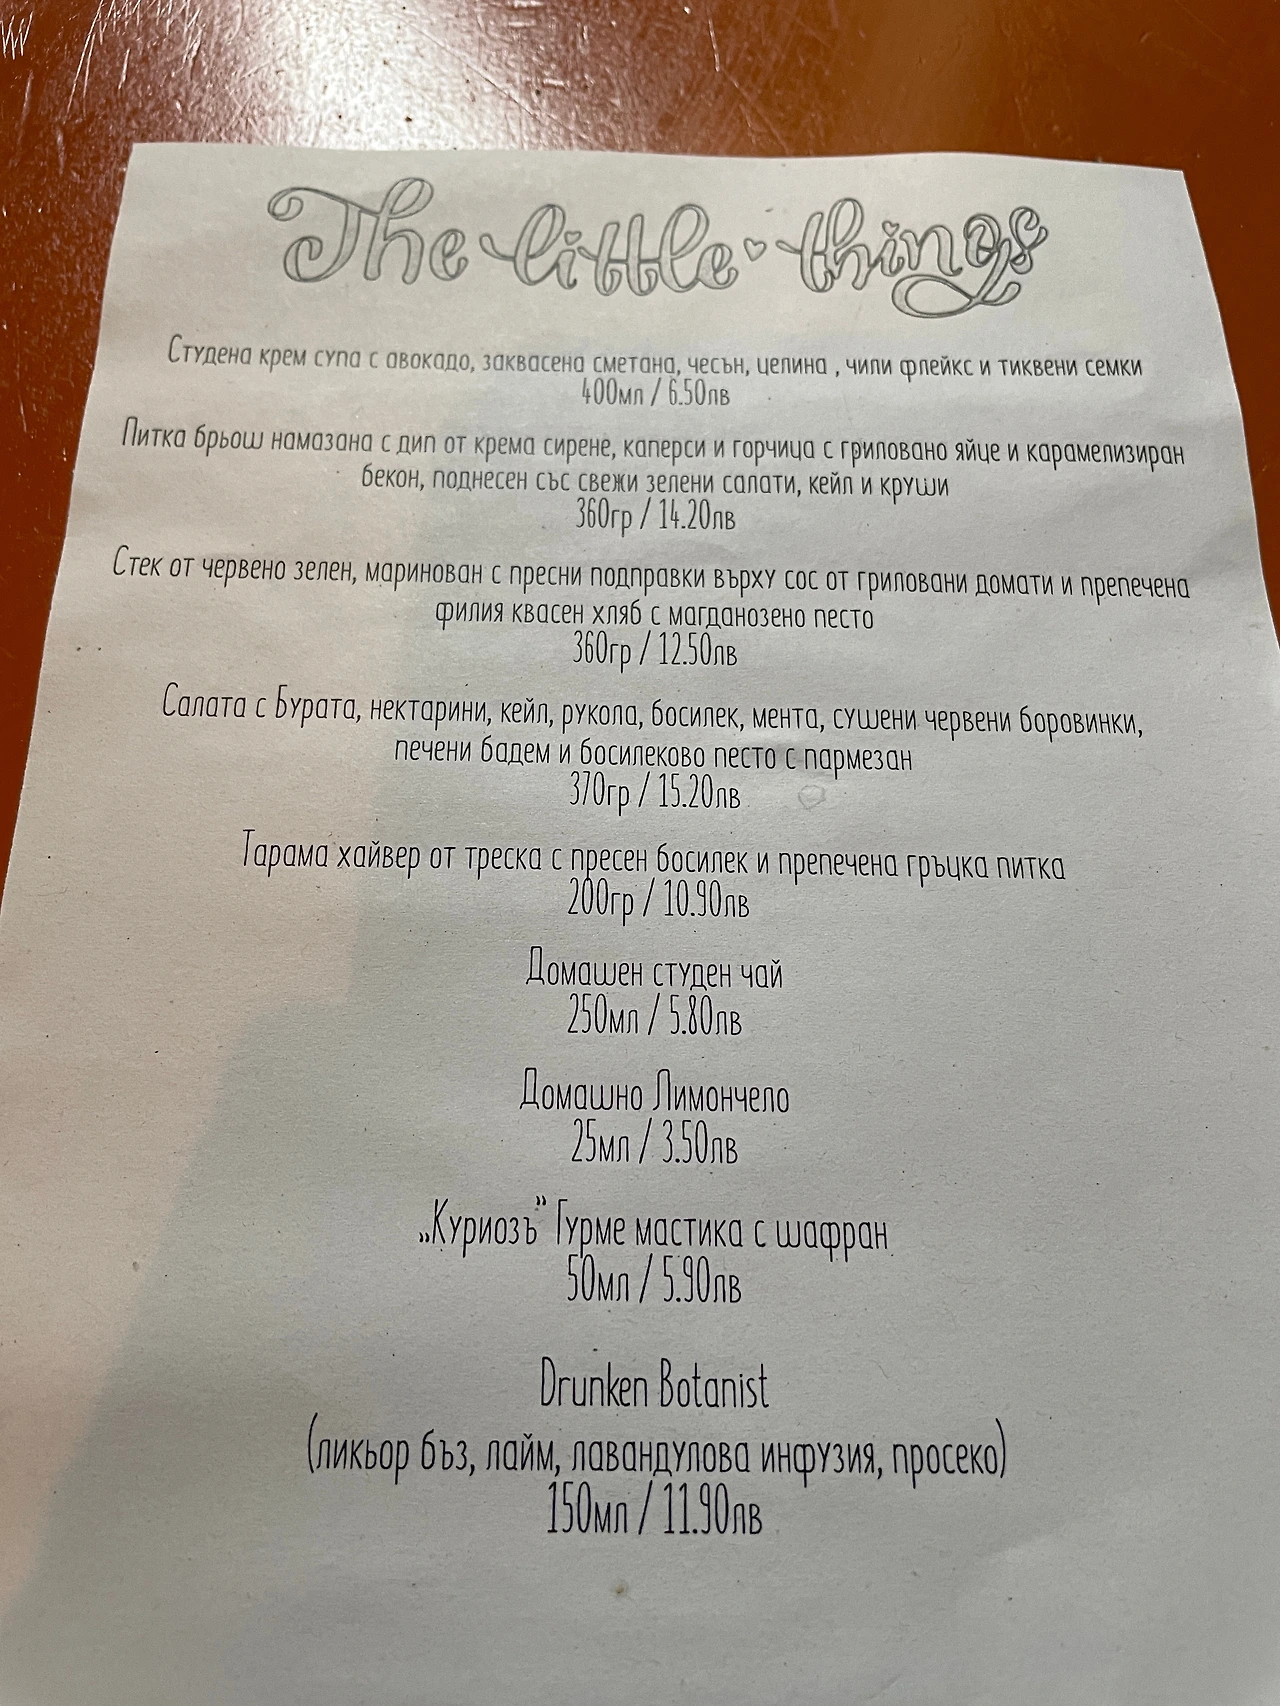 The little things
Студена крем супа с авокадо, заквасена сметана, чесън, целина , чили флейкс и тиквени семки
400мл / 6.50лв
Питка брьош намазана с дип от крема сирене, каперси и горчица с гриловано яйце и карамелизиран
бекон, поднесен със свежи зелени салати, кейл и круши
360гр / 14.20лв
Стек от червено зелен, маринован с пресни подправки върху сос от гриловани домати и препечена
филия квасен хляб с магданозено песто
360гр / 12.50лв
Салата с Бурата, нектарини, кейл, рукола, босилек, мента, сушени червени боровинки,
печени бадем и босилеково песто с пармезан
370гр / 15.20лв
Тарама хайвер от треска с пресен босилек и препечена гръцка питка
200гр / 10.90лв
Домашен студен чай
250мл / 5.80лв
Домашно Лимончело
25мл / 3.50лв
„Куриозъ” Гурме мастика с шафран
50мл / 5.90лв
Drunken Botanist
(ликьор бъз, лайм, лавандулова инфузия, просеко)
150мл / 11.90лв